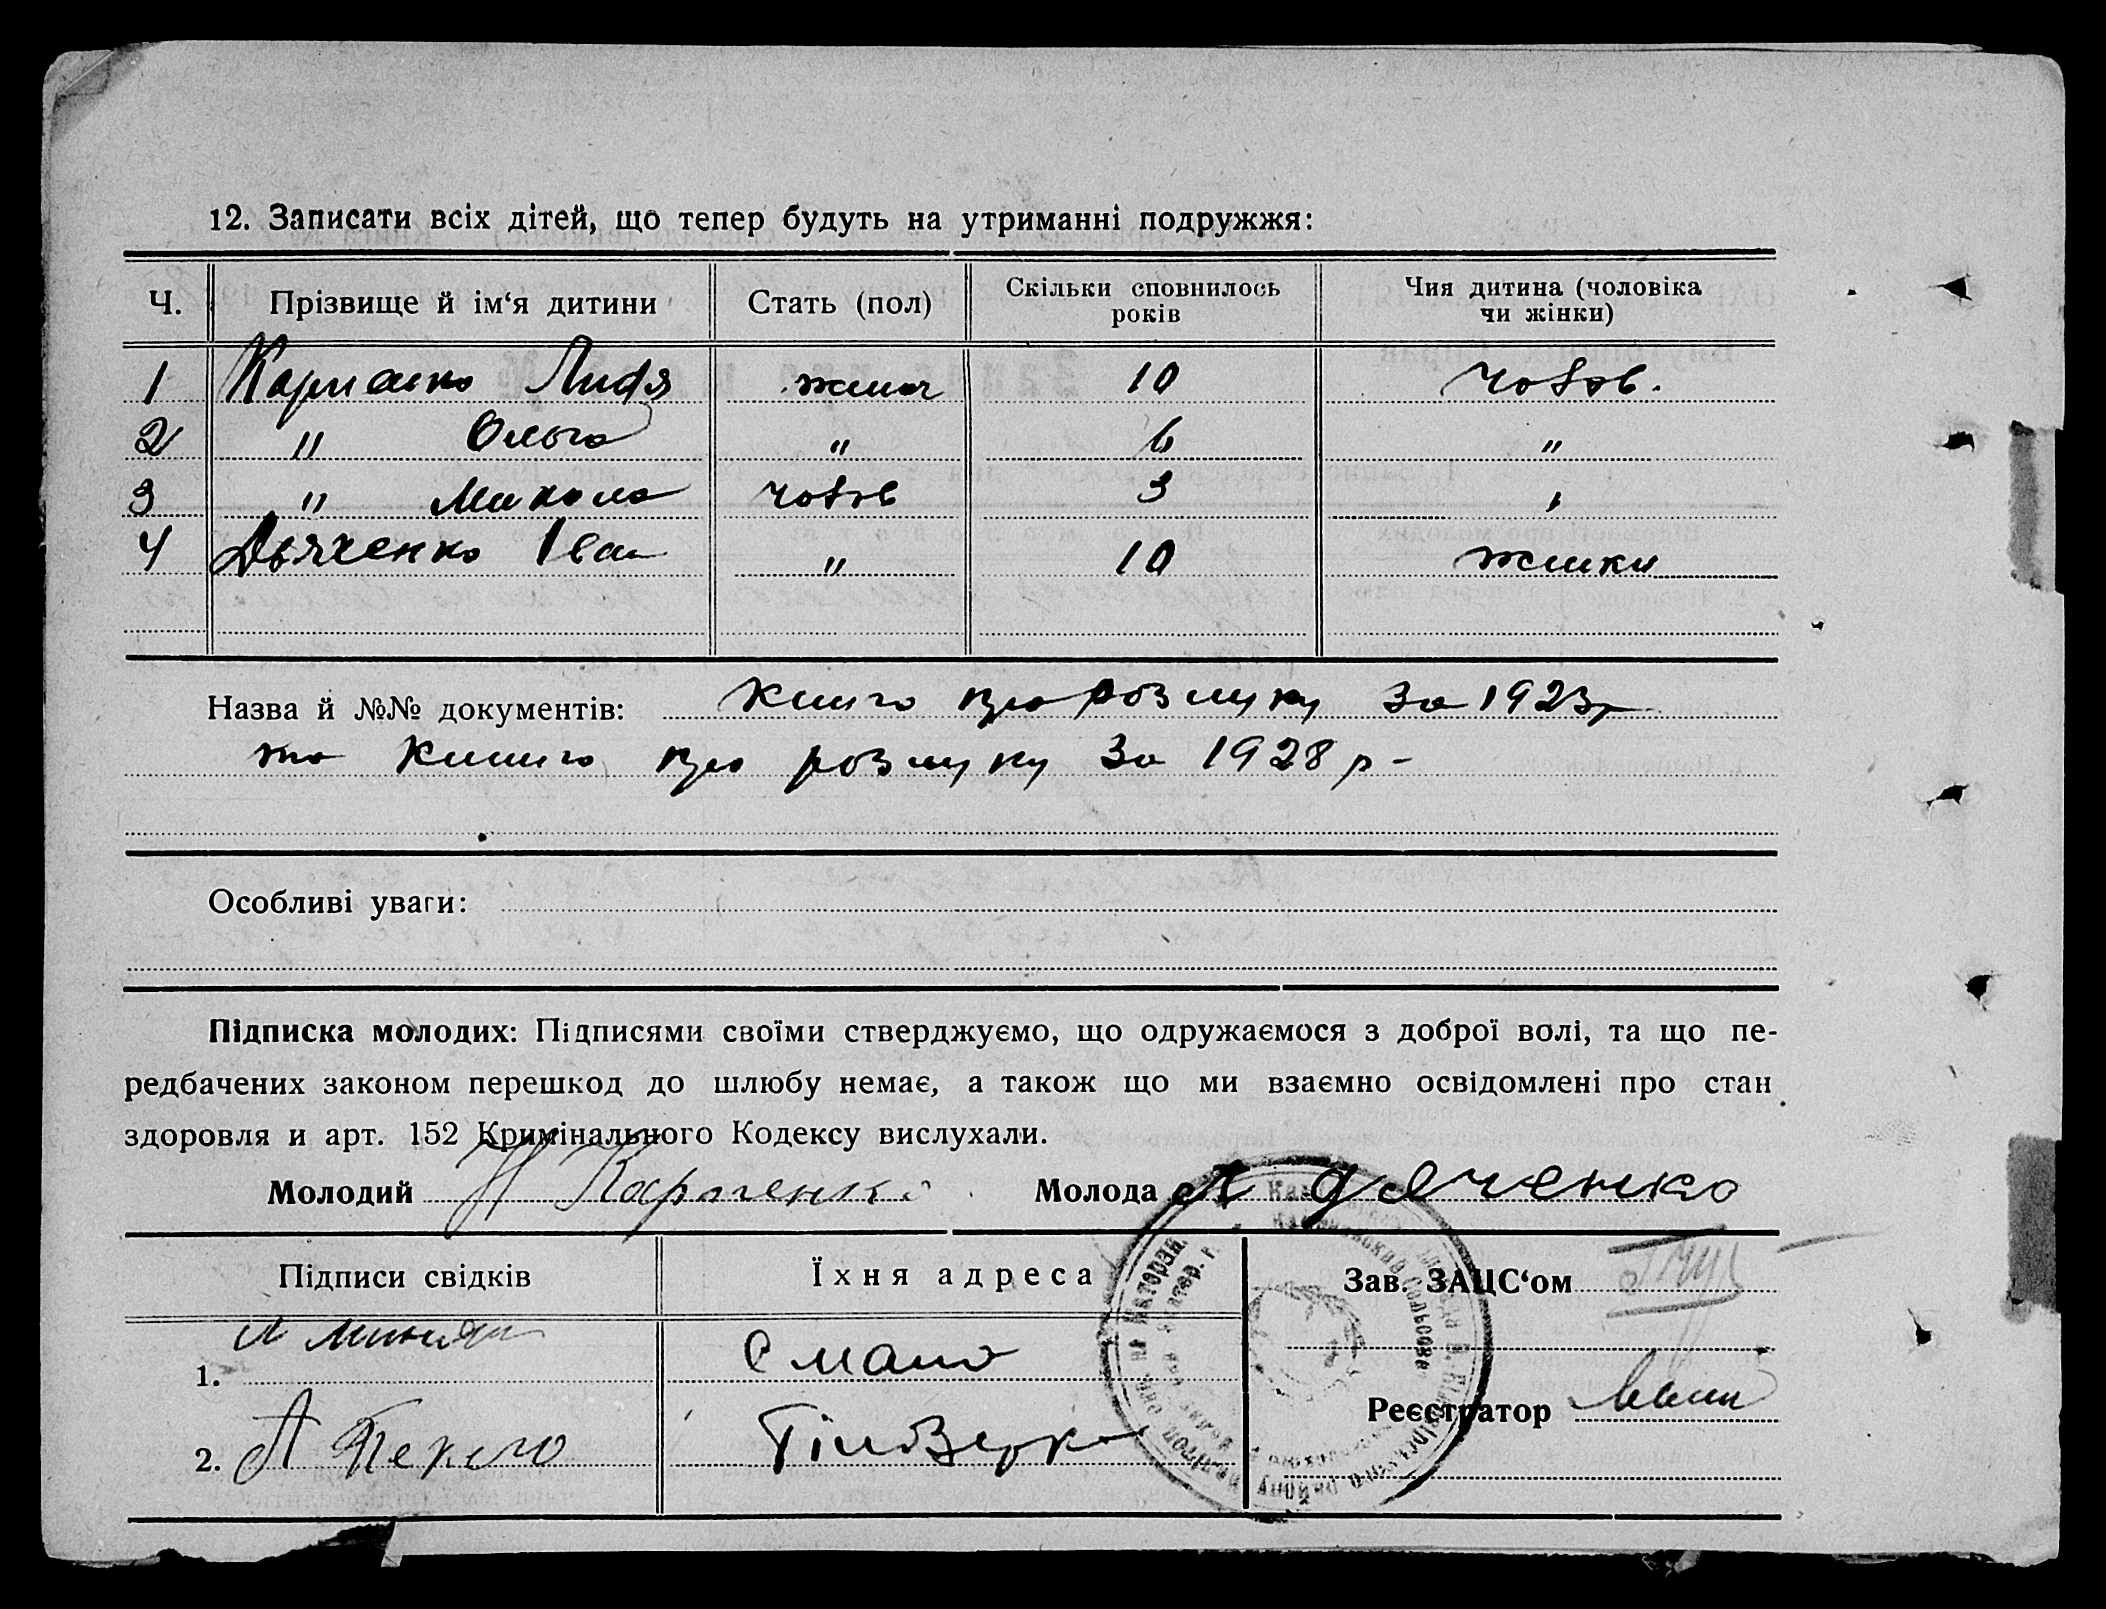 12. Записати всіх дітей, що тепер будуть на утриманні подружжя:
Ч. Прізвище й ім‘я дитини Стать (пол) Скільки сповнилось років Чия дитина (чоловіка чи жінки)
1 Карпенко Лидя жіноч 10 чолов.
2 " Ольга " 6 "
3 " Микола чолов 3 "
4 Дьяченко Іван " 10 жінки
Назва й №№ документів: книга про розлуку за 1923р
та книга про розлуку за 1928 р-
Особливі уваги:
Підписка молодих: Підписями своїми стверджуємо, що одружаємося з доброї волі, та що пе-
редбачених законом перешкод до шлюбу немає, а також що ми взаємно освідомлені про стан
здоровля и арт. 152 Кримінального Кодексу вислухали.
Молодий Карпенко Молода Дяченко
Підписи свідків Їхня адреса Зав. ЗАЦС‘ом
1.
Реєстратор
2. А